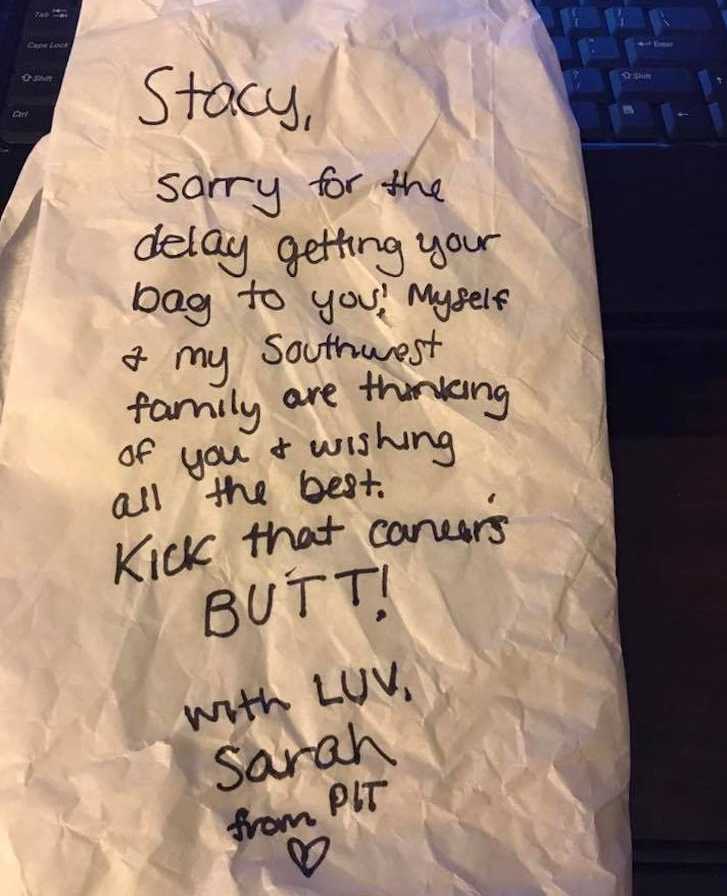 Tab
Caps Lock
Shift
Ctrl
Enter
Shift
?
Stacy,
sorry for the
delay getting your
bag to you! Myself
& my Southwest
family are thinking
of you & wishing
all the best.
Kick that cancer's
BUTT!
with LUV,
Sarah
from PIT